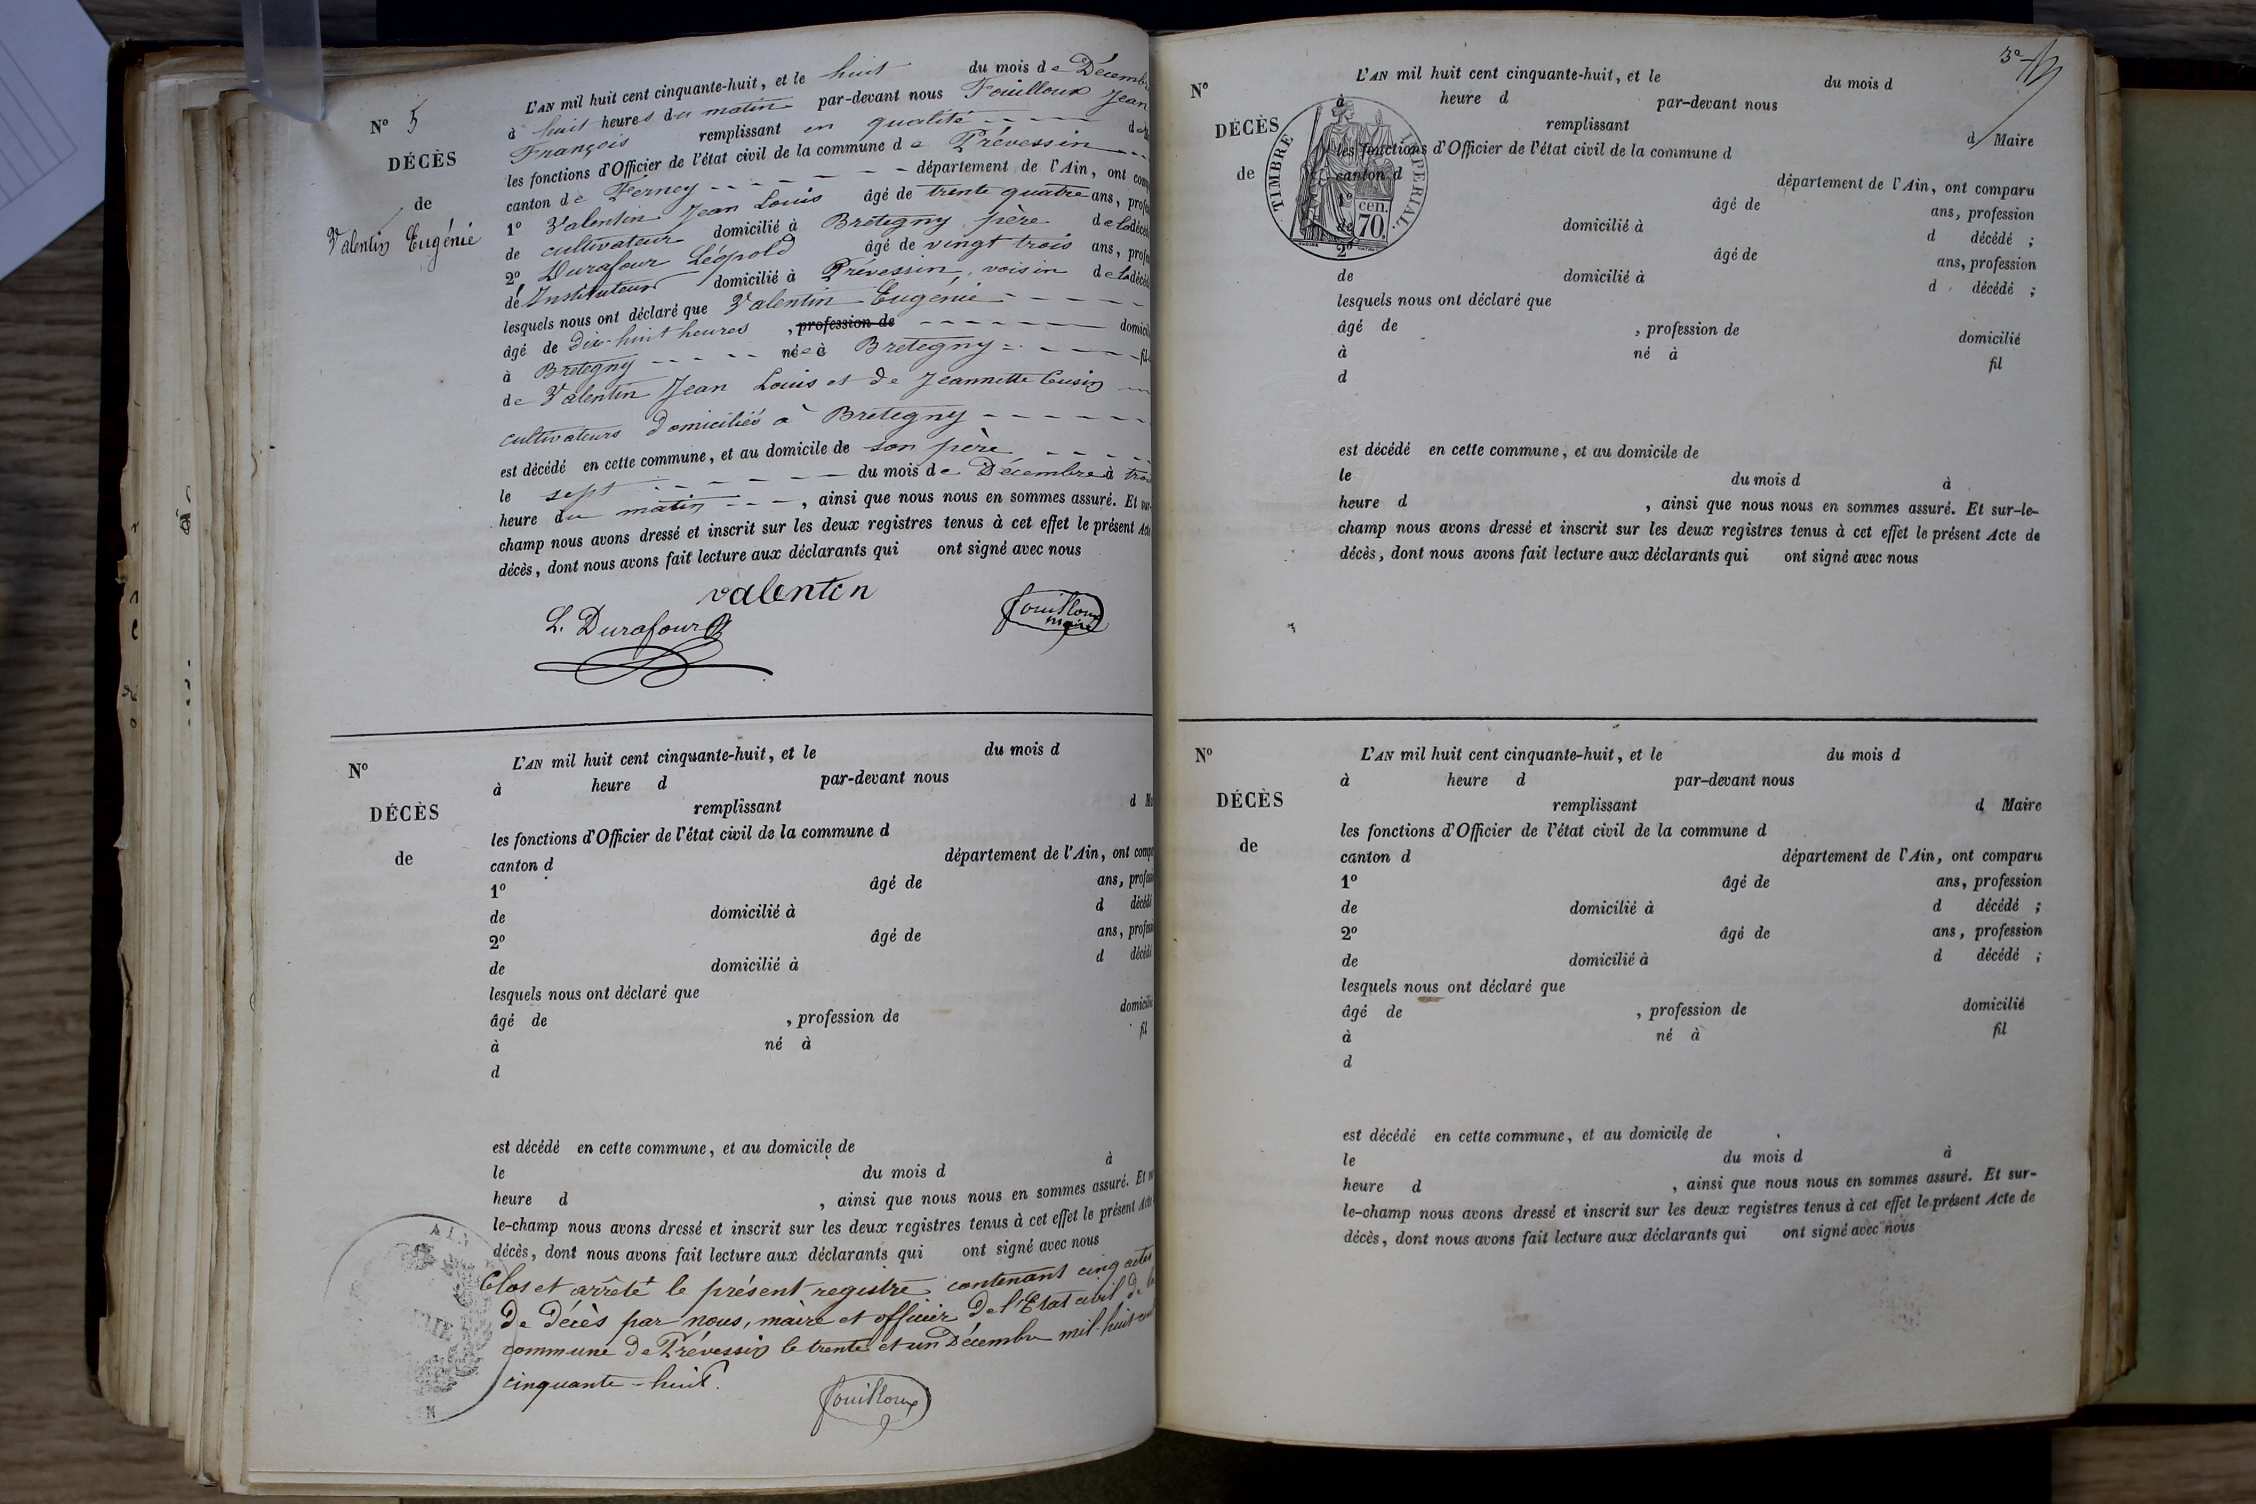 N° 5
DÉCÈS
de
Valentin Eugénie
L'AN mil huit cent cinquante-huit, et le huit du mois de Décembre
à huit heures du matin par-devant nous Fouilloux Jean
François remplissant en qualité - - - - de
les fonctions d'Officier de l'état civil de la commune de Prévessin - -
canton de Ferney - - - - - - - département de l'Ain, ont
1° Valentin Jean Louis âgé de trente quatre ans,
de cultivateur domicilié à Bretegny père de la
2° Durafour Léopold âgé de vingt trois ans,
de Instituteur domicilié à Prévessin, voisin de la
lesquels nous ont déclaré que Valentin Eugénie - - - - -
âgé de dix-huit heures , profession de - - - - - - -
à Bretegny - - - - - née à Bretegny - - - - -
de Valentin Jean Louis et de Jeannette Cusin
cultivateurs domiciliés à Bretegny - - - - - -
est décédé en cette commune, et au domicile de son père - - - - -
le sept - - - - - - du mois de Décembre à
heure du matin - - -, ainsi que nous nous en sommes assuré. Et
champ nous avons dressé et inscrit sur les deux registres tenus à cet effet le présent Acte
décès, dont nous avons fait lecture aux déclarants qui ont signé avec nous
valentin
L. Durafour
fouilloux
maire
N°
DÉCÈS
de
L'AN mil huit cent cinquante-huit, et le du mois d
à heure d par-devant nous
remplissant d
les fonctions d'Officier de l'état civil de la commune d
canton d département de l'Ain, ont
1° âgé de ans,
de domicilié à d décédé
2° âgé de ans,
de domicilié à d décédé
lesquels nous ont déclaré que
âgé de , profession de domicilié
à né à fil
d
est décédé en cette commune, et au domicile de
le du mois d à
heure d , ainsi que nous nous en sommes assuré. Et
le-champ nous avons dressé et inscrit sur les deux registres tenus à cet effet le présent Acte
décès, dont nous avons fait lecture aux déclarants qui ont signé avec nous
AIN
Clos et arrêté le présent registre contenant cinq actes
de décès par nous, maire et officier de l'Etat civil de la
commune de Prévessin le trente et un Décembre mil-huit-cent
cinquante-huit.
fouilloux
3e
N°
DÉCÈS
de
TIMBRE IMPERIAL.
70 cen.
L'AN mil huit cent cinquante-huit, et le du mois d
à heure d par-devant nous
remplissant d Maire
les fonctions d'Officier de l'état civil de la commune d
canton d département de l'Ain, ont comparu
1° âgé de ans, profession
de domicilié à d décédé ;
2° âgé de ans, profession
de domicilié à d décédé ;
lesquels nous ont déclaré que
âgé de , profession de domicilié
à né à fil
d
est décédé en cette commune, et au domicile de
le du mois d à
heure d , ainsi que nous nous en sommes assuré. Et sur-le-
champ nous avons dressé et inscrit sur les deux registres tenus à cet effet le présent Acte de
décès, dont nous avons fait lecture aux déclarants qui ont signé avec nous
N°
DÉCÈS
de
L'AN mil huit cent cinquante-huit, et le du mois d
à heure d par-devant nous
remplissant d Maire
les fonctions d'Officier de l'état civil de la commune d
canton d département de l'Ain, ont comparu
1° âgé de ans, profession
de domicilié à d décédé ;
2° âgé de ans, profession
de domicilié à d décédé ;
lesquels nous ont déclaré que
âgé de , profession de domicilié
à né à fil
d
est décédé en cette commune, et au domicile de
le du mois d à
heure d , ainsi que nous nous en sommes assuré. Et sur-
le-champ nous avons dressé et inscrit sur les deux registres tenus à cet effet le présent Acte de
décès, dont nous avons fait lecture aux déclarants qui ont signé avec nous